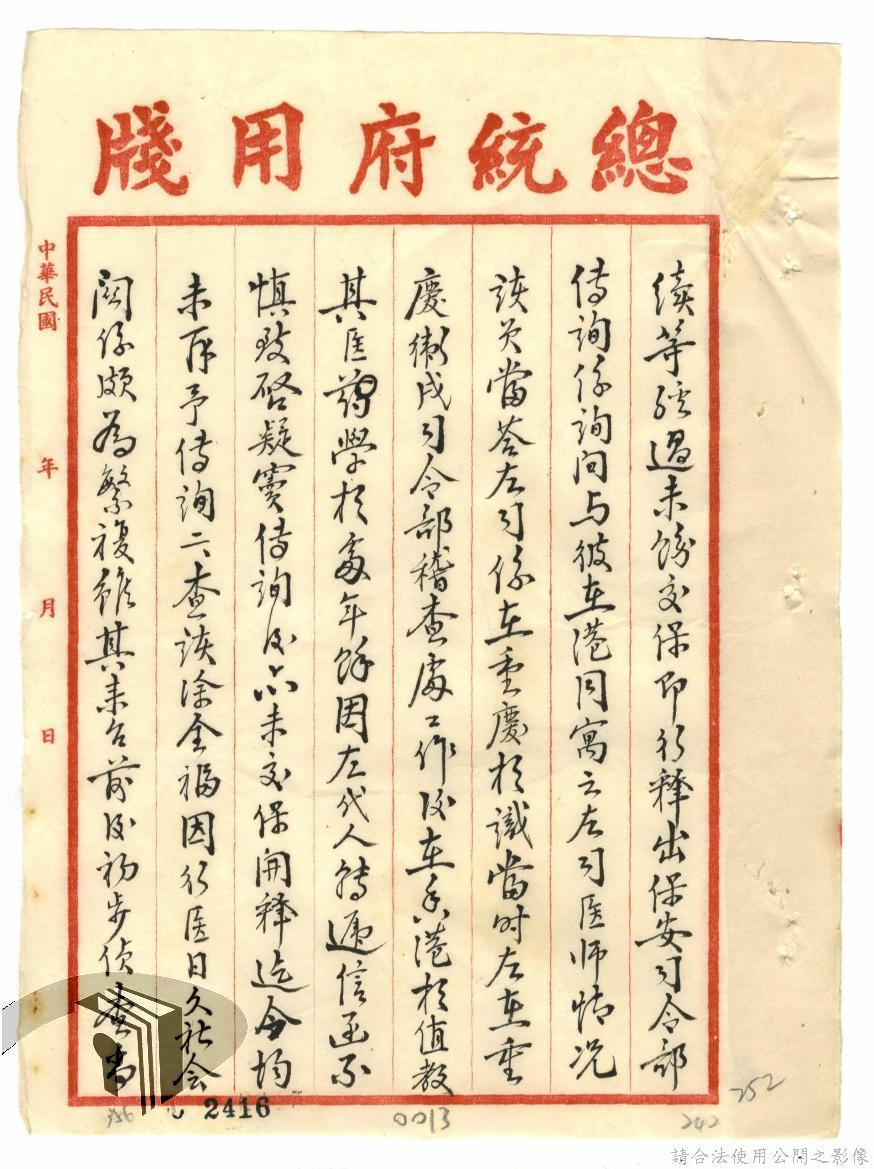 總統府用牋
續等經過未能交保即行釋出保安司令部
傳詢係詢問与彼在港同寓之左司医师情况
該員當答左司係在重慶相識當时左在重
慶衛戍司令部稽查處工作後在香港相值教
其医药學於处年餘因左代人轉遞信函不
慎致啓疑竇傳詢後亦未交保開釋迄今均
未再予傳詢六查該涂全福因行医日久社会
関係頗為繁複雖其来台前後初步偵查尚
中華民國 年 月 日
2416
0013
242
252
請合法使用公開之影像